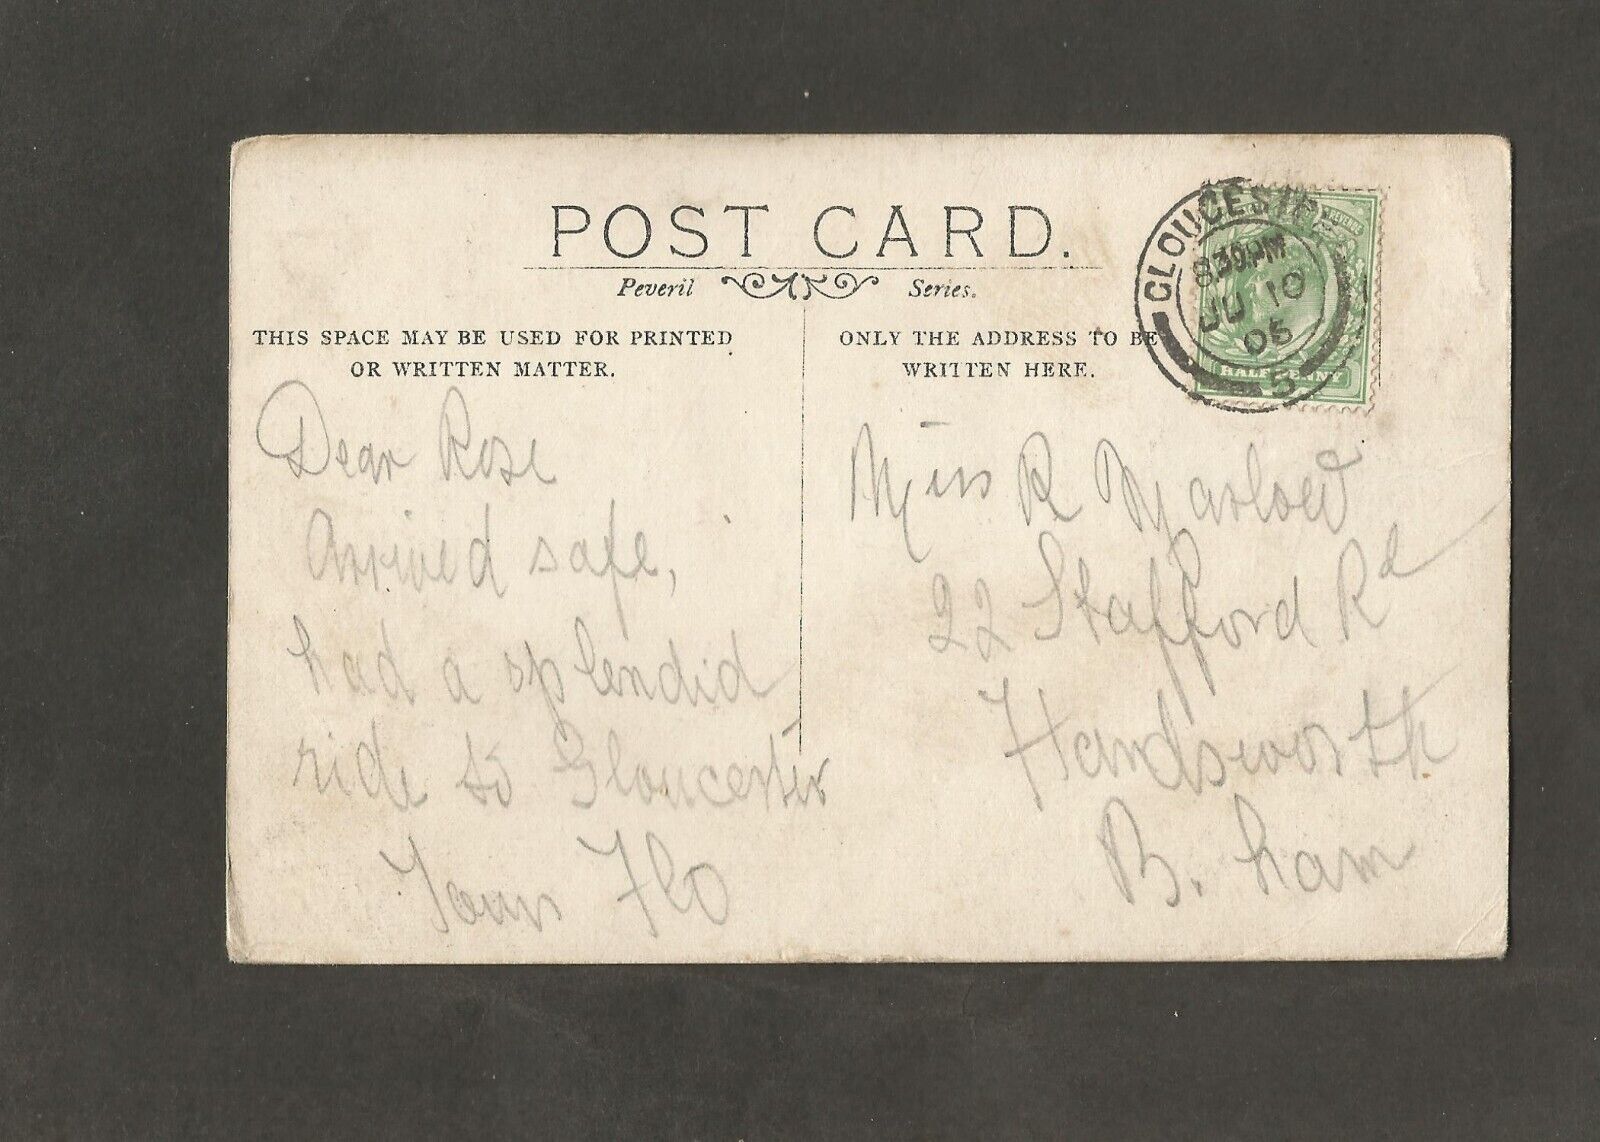 POST CARD.
Peveril Series.
THIS SPACE MAY BE USED FOR PRINTED
OR WRITTEN MATTER.
Dear Rose
Arrived safe,
had a splendid
ride to Gloucester
Yours Flo
ONLY THE ADDRESS TO BE
WRITTEN HERE.
Miss R Marlow
22 Stafford Rd
Handsworth
B. ham
GLOUCESTER
8 30 PM
JU 10
05
5
HALFPENNY